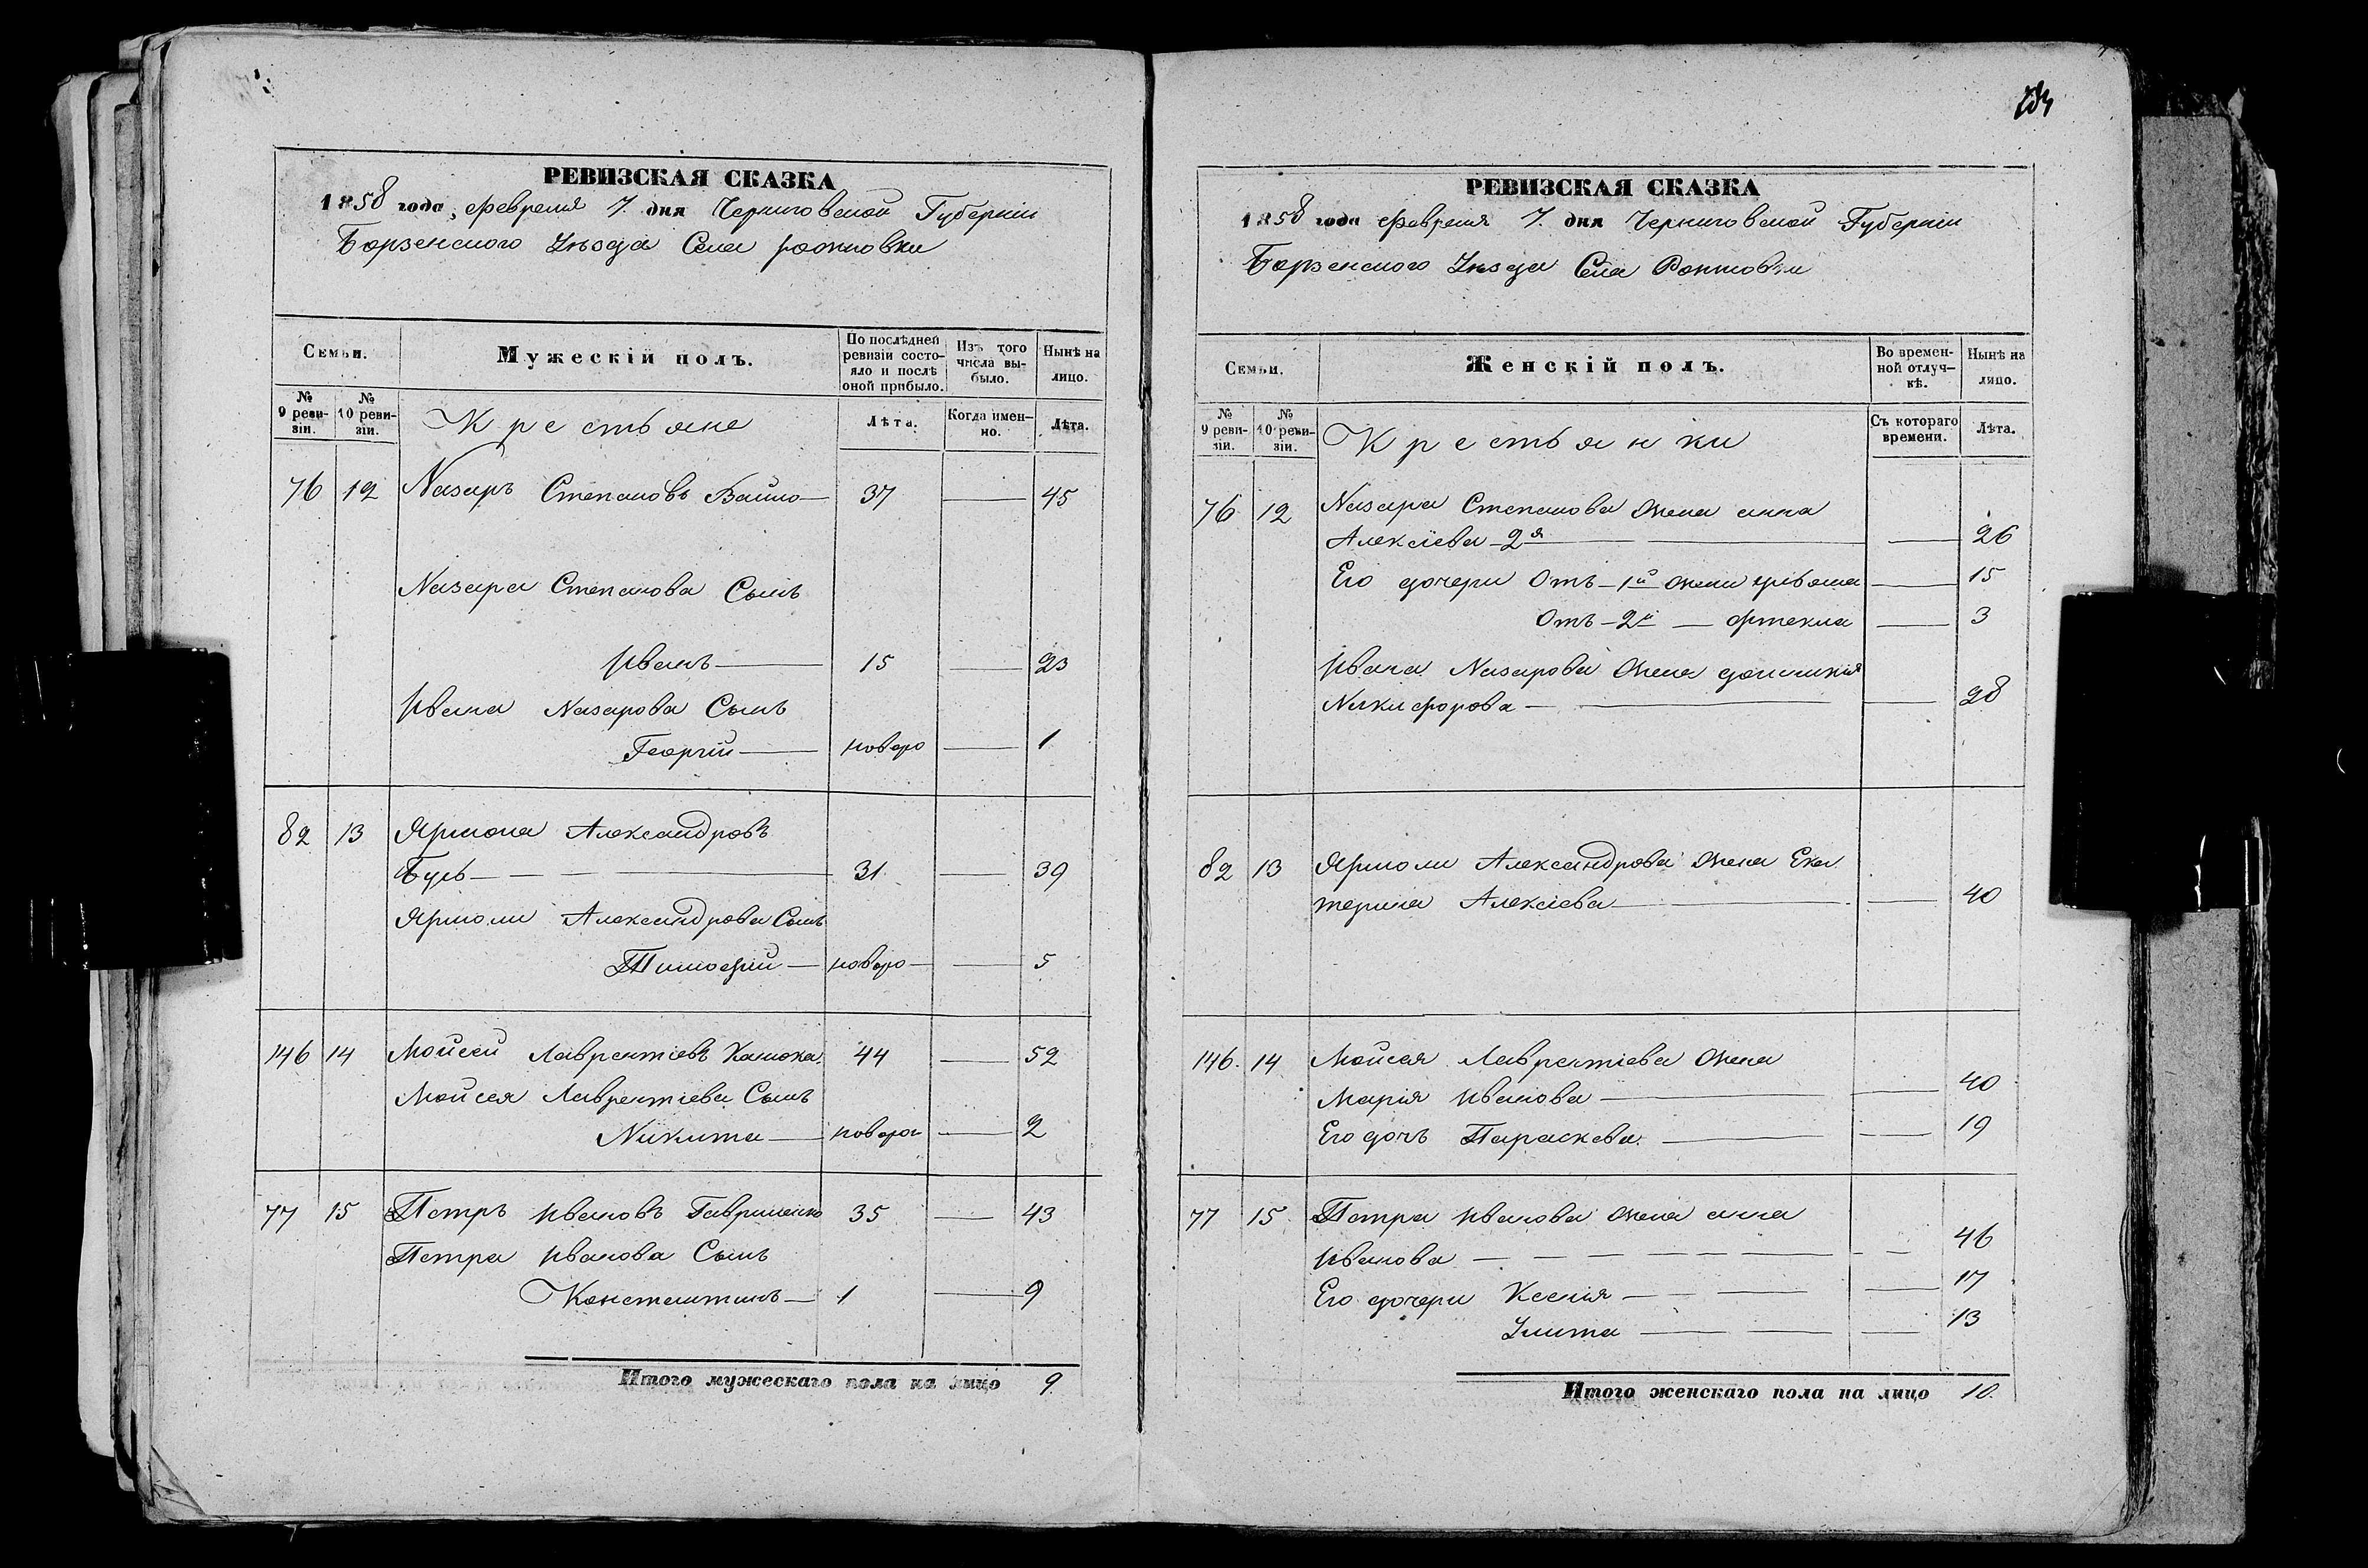 РЕВИЗСКАЯ СКАЗКА
1858 года, февраля 7. дня Черниговской Губерніи
Борзенского Уѣзда Села
Семьи.
Мужескій полъ.
По послѣдней ревизіи состояло и послѣ оной прибыло.
Изъ того числа выбыло.
Нынѣ на лицо.
№ 9 ревизіи.
№ 10 ревизіи.
Крестьяне
Лѣта.
Когда именно.
Лѣта.
76 12 Назаръ Степановъ 37 45
Назара Степанова Сынъ
Иванъ 15 23
Ивана Назарова Сынъ
Георгій новоро 1
82 13 Ярмола Александровъ
31 39
Ярмоли Александрова Сынъ
Тимофій новоро 5
146 14 Мойсей Лаврентіевъ 44 52
Мойсея Лаврентіева Сынъ
Никита новорож 2
77 15 Петръ Ивановъ 35 43
Петра Иванова Сынъ
Константинъ 1 9
Итого мужескаго пола на лицо 9.
РЕВИЗСКАЯ СКАЗКА
1858 года февраля 7. дня Черниговской Губерніи
Борзенского Уѣзда Села
Семьи.
Женскій полъ.
Во временной отлучкѣ.
Нынѣ на лицо.
№ 9 ревизіи.
№ 10 ревизіи.
Крестьянки
Съ котораго времени.
Лѣта.
76 12 Назара Степанова жена анна
Алексіева 2я 26
Его дочери Отъ 1й жени 15
Отъ 2й 3
Ивана Назарова жена
Никифорова 28
82 13 Ярмоли Александрова жена Ека
терина Алексіева 40
146. 14 Мойсея Лаврентіева жена
Марія Иванова 40
Его дочъ Параскева 19
77 15 Петра Иванова жена анна
Иванова 46
Его дочери Ксенія 17
Улита 13
Итого женскаго пола на лицо 10.